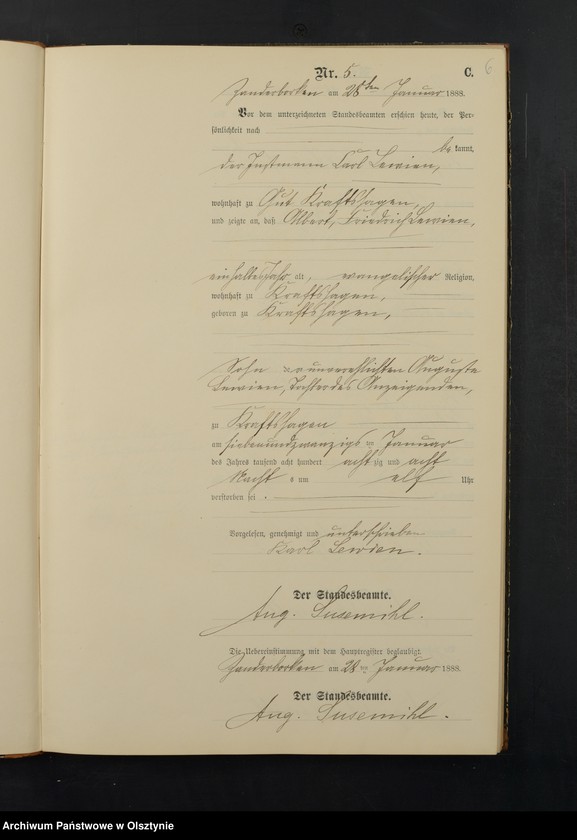 6
Nr. 5. C.
Zanderborken am 28ten Januar 1888.
Vor dem unterzeichneten Standesbeamten erschien heute, der Per-
sönlichkeit nach
be kannt,
der Instmann Carl Lewien,
wohnhaft zu Gut Kraftshagen,
und zeigte an, daß Albert, Friedrich Lewien,
ein halbes Jahr alt, evangelischer Religion,
wohnhaft zu Kraftshagen,
geboren zu Kraftshagen,
Sohn der unverehelichten Auguste
Lewien, Tochter des Anzeigenden,
zu Kraftshagen
am siebenundzwanzigsten Januar
des Jahres tausend acht hundert achtzig und acht
Nachts um elf Uhr
verstorben sei.
Vorgelesen, genehmigt und unterschrieben
Karl Lewien.
Der Standesbeamte.
Aug. Susemihl.
Die Uebereinstimmung mit dem Hauptregister beglaubigt.
Zanderborken am 28ten Januar 1888.
Der Standesbeamte.
Aug. Susemihl.
Archiwum Państwowe w Olsztynie